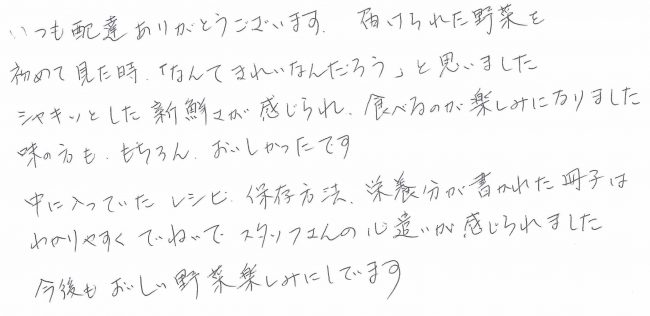 いつも配達ありがとうございます. 届けられた野菜を
初めて見た時、「なんてきれいなんだろう」と思いました
シャキッとした新鮮さが感じられ、食べるのが楽しみになりました
味の方も、もちろん、おいしかったです
中に入っていたレシピ、保存方法、栄養分が書かれた冊子は
わかりやすくていねいで スタッフさんの心遣いが感じられました
今後も おいしい野菜楽しみにしています